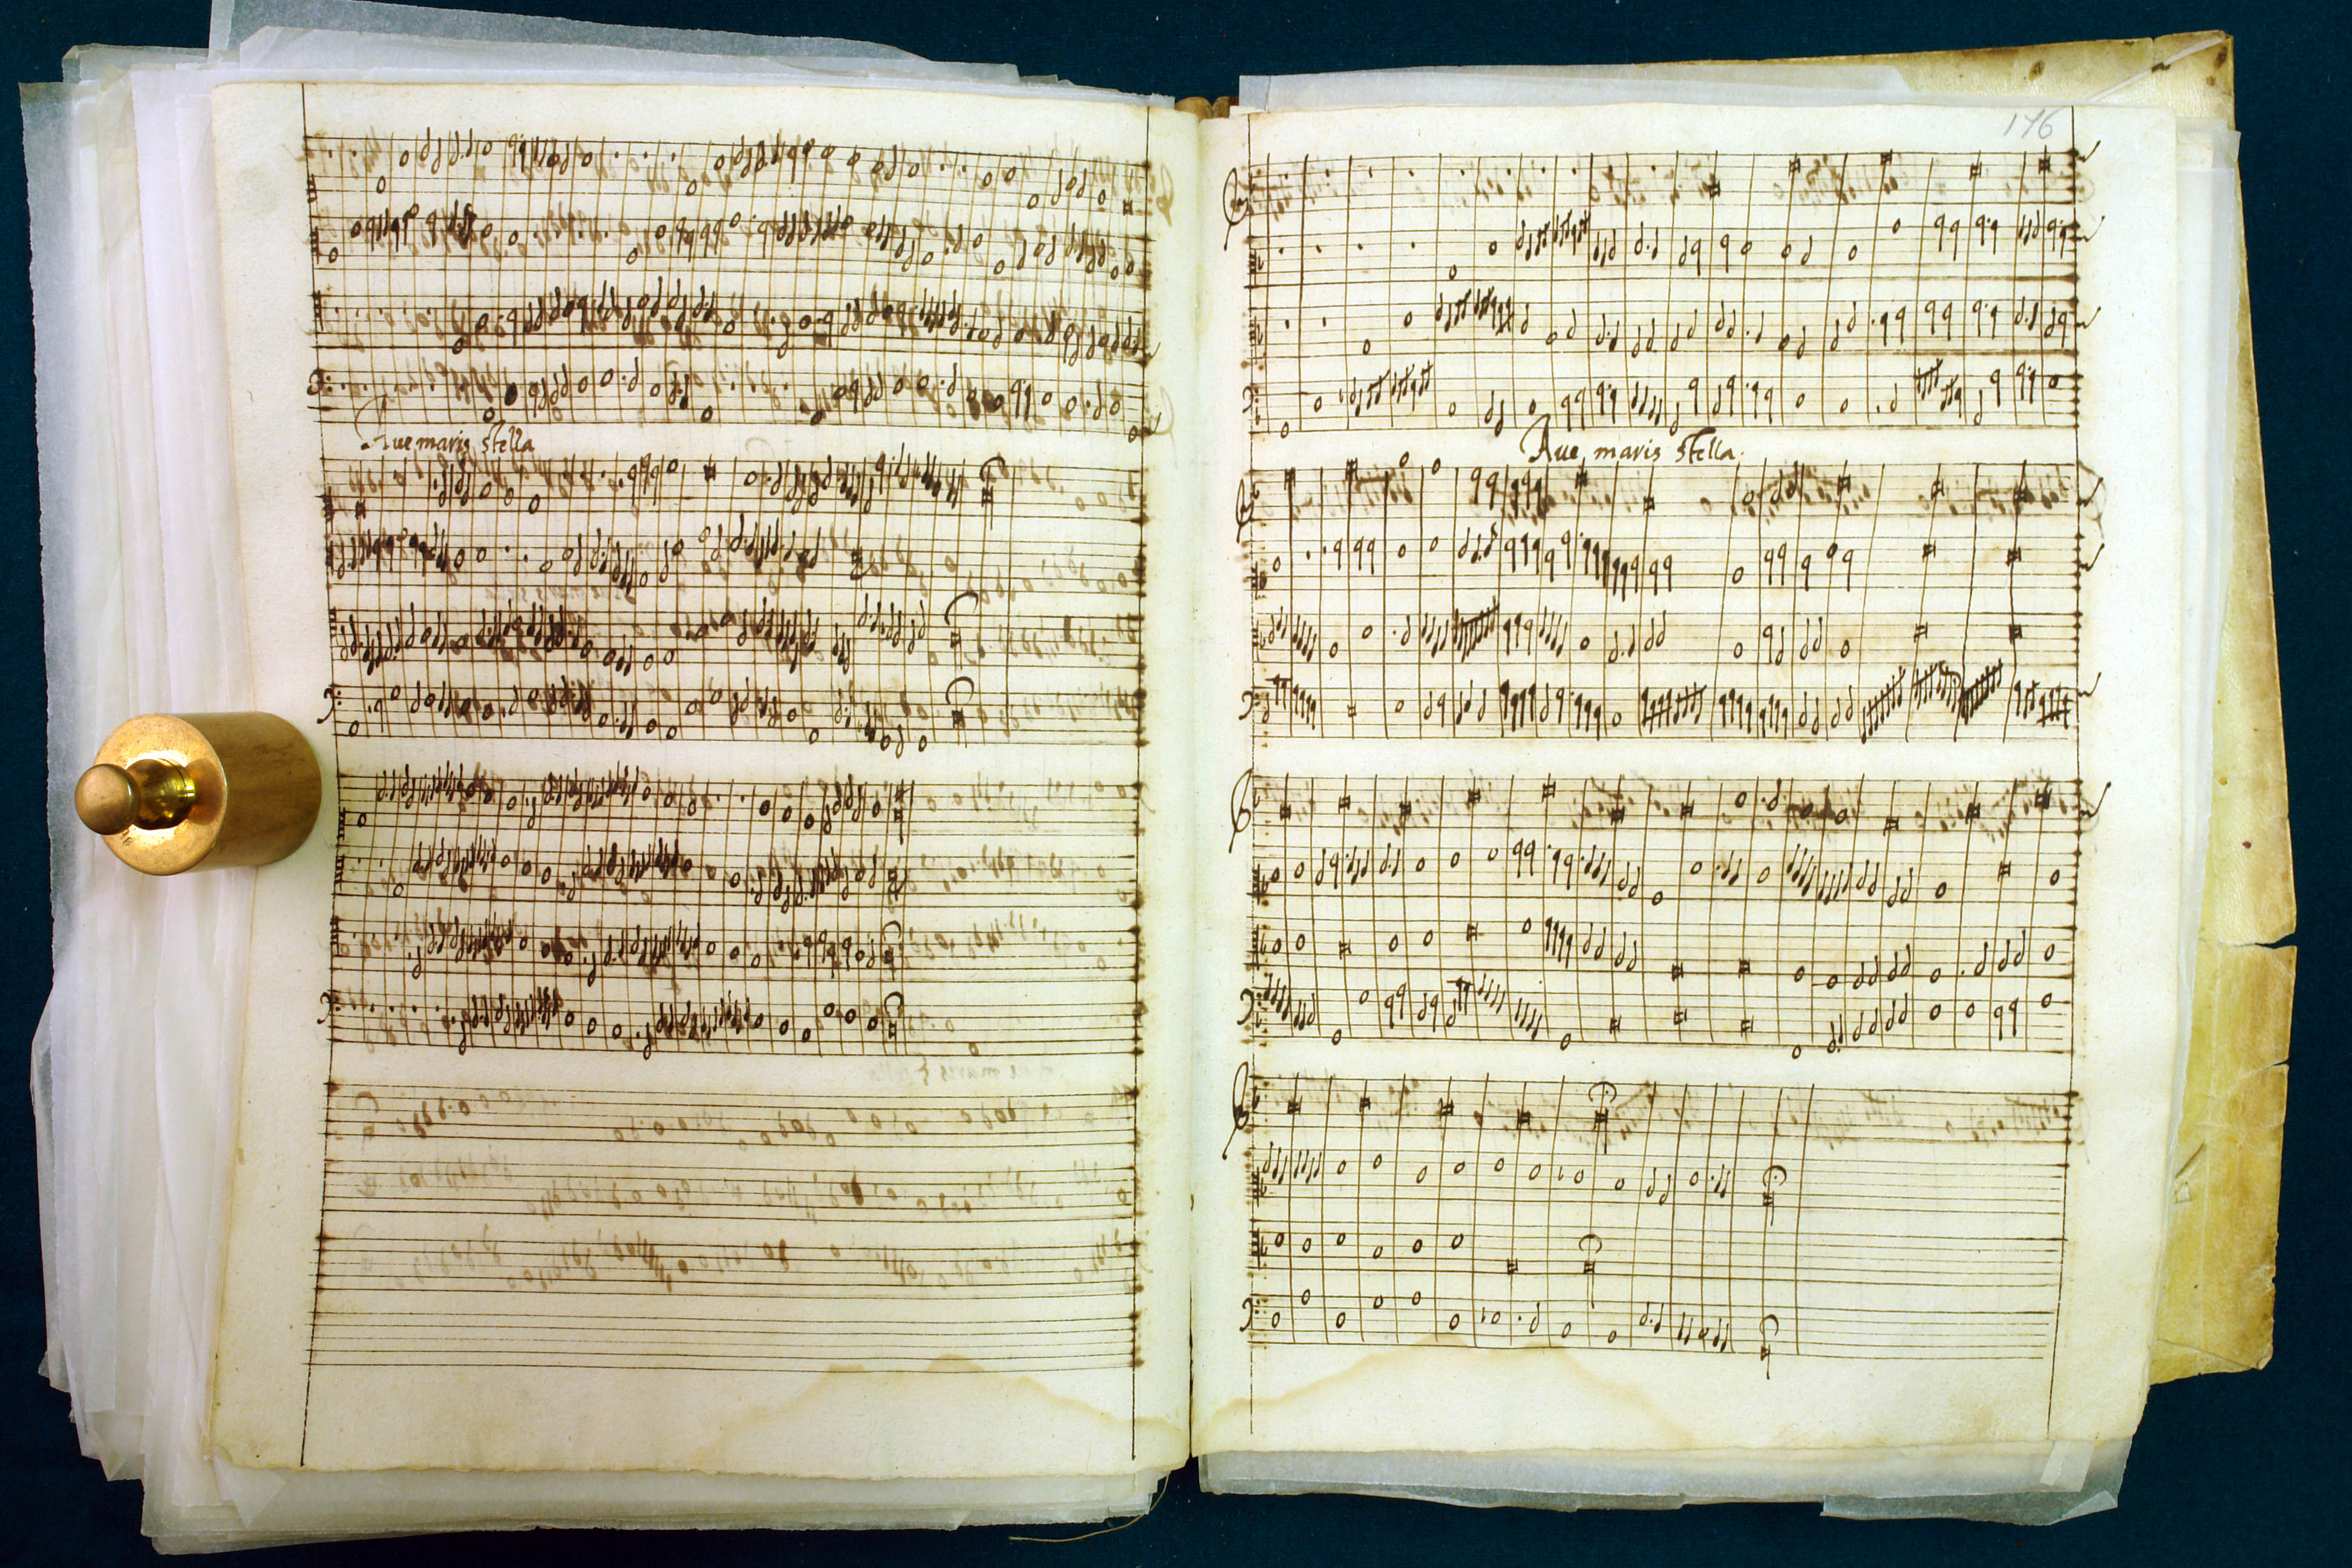 Aue maris stella
176
Aue maris stella.